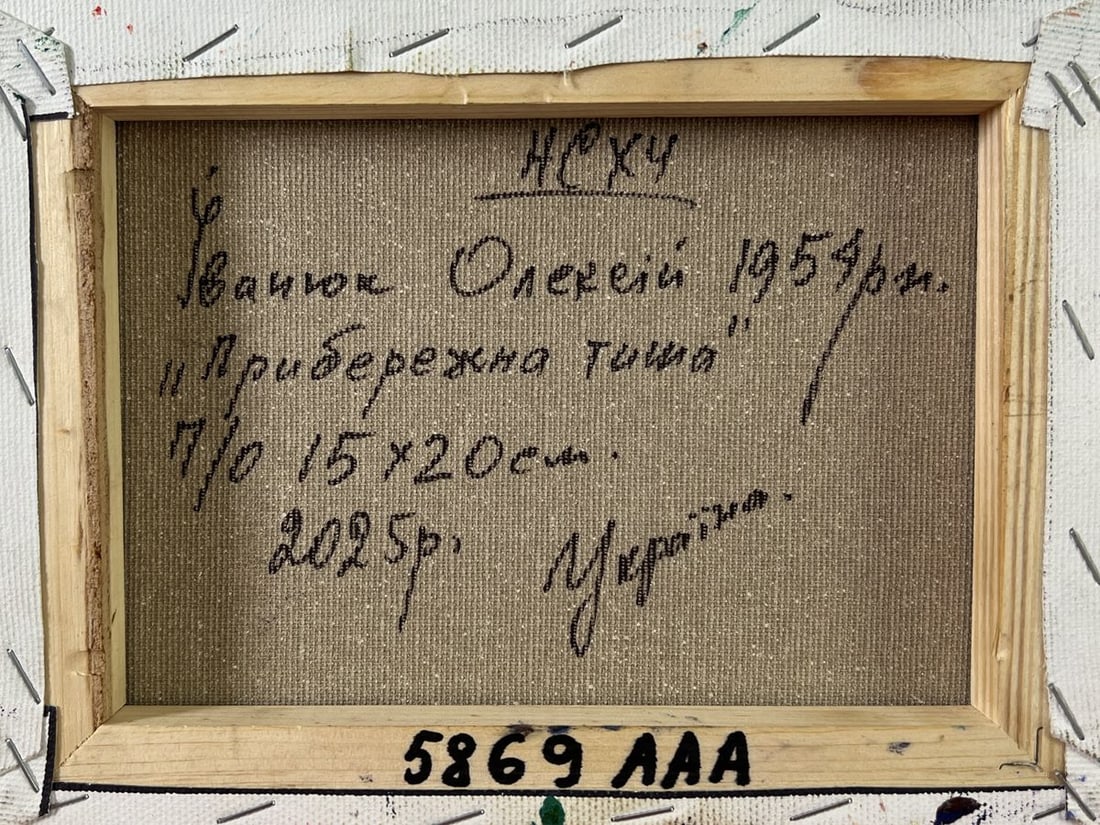 НСХУ
Іванюк Олексій 1954рн.
"Прибережна тиша"
П/о 15х20см.
2025р. Україна.
5869 ААА